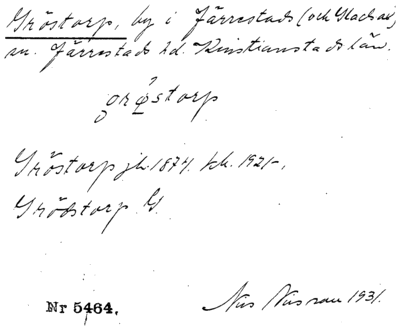 Gröstorp, by i Järrestads (och Gladsax)
sn. Järrestads hd. Kristianstads län.
grøstorp
Gröstorp jb. 1874. kk. 1921-.
Grödstorp G.
Nr 5464. 1931.